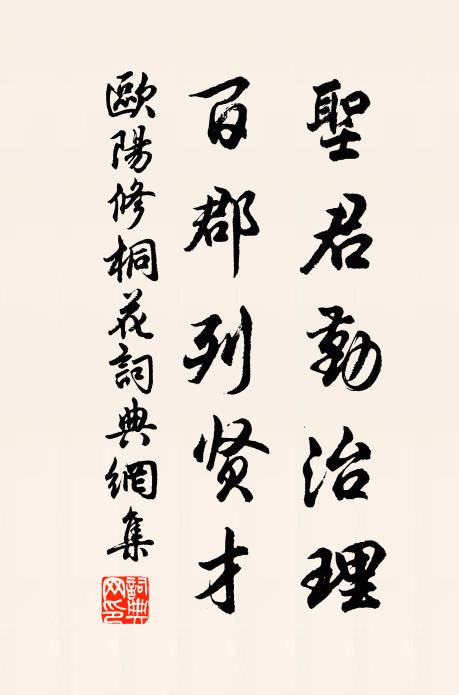 聖君勤治理
百郡列贤才
歐陽修桐花詞典網集
詞典网印